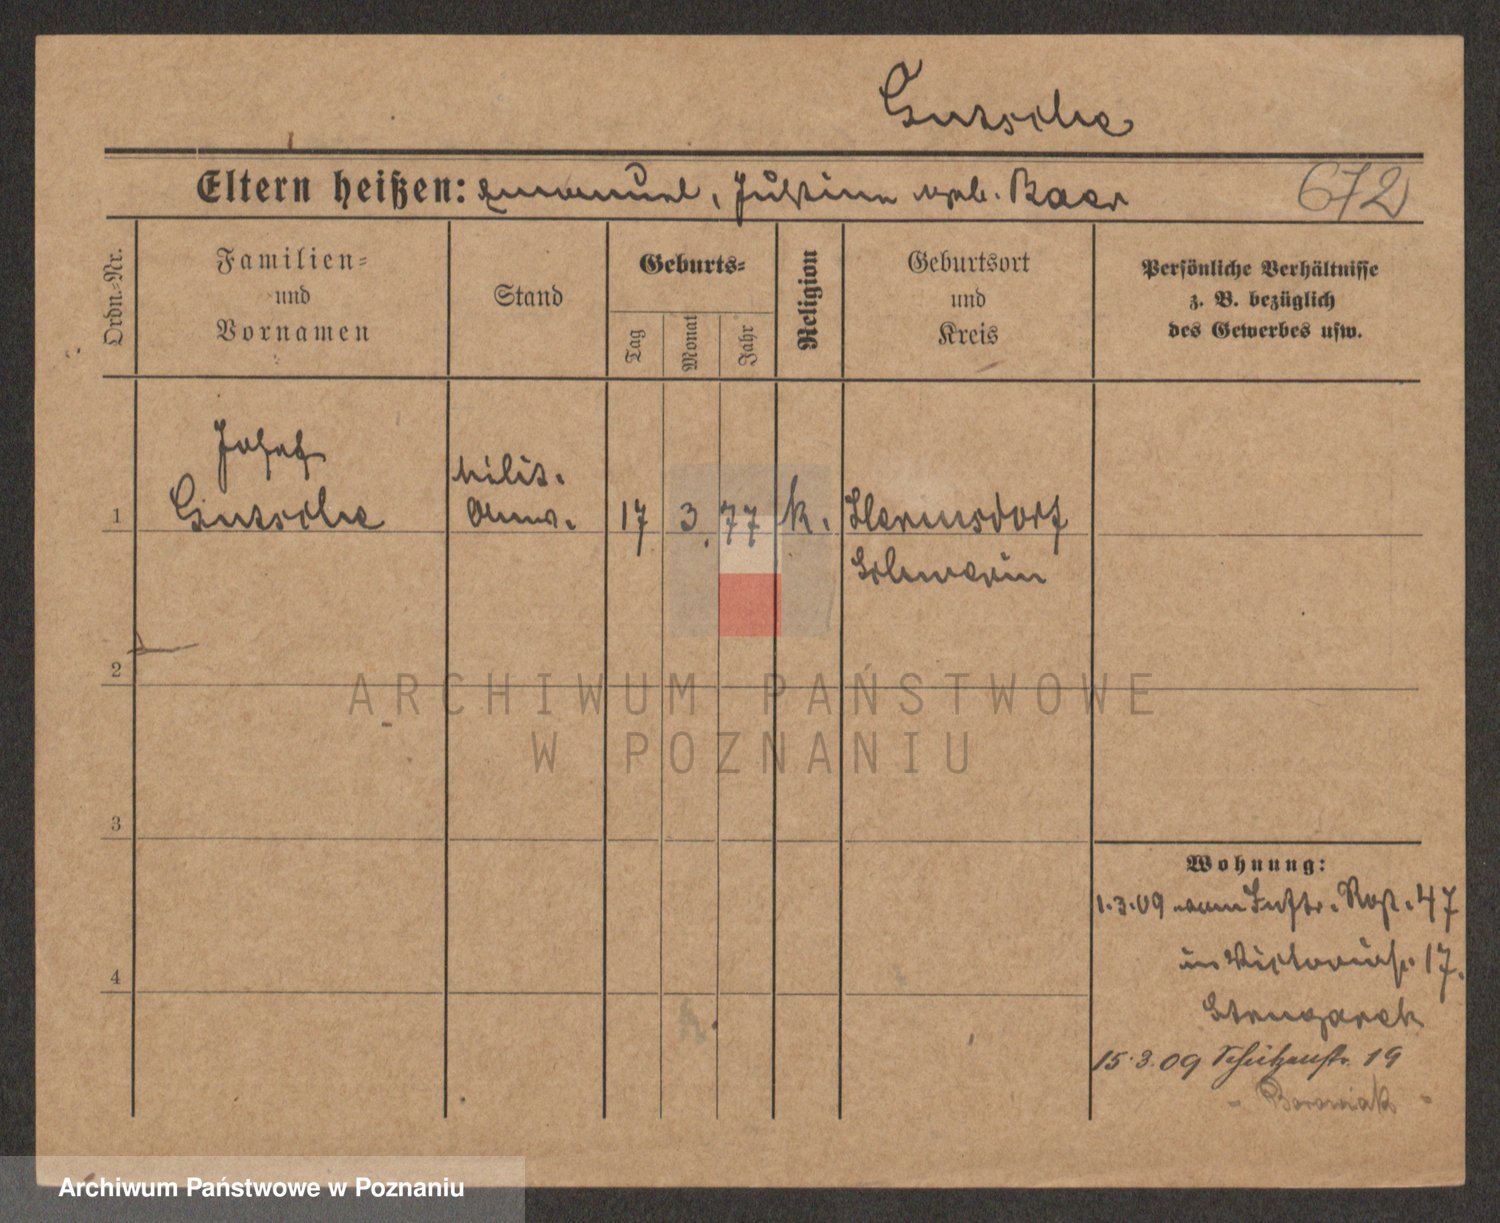 Gutsche
Eltern heißen: Emanuel, Justine geb. Baer
672
Ordn.-Nr.
Familien-
und
Vornamen
Stand
Geburts-
Tag
Monat
Jahr
Religion
Geburtsort
und
Kreis
Persönliche Verhältnisse
z. B. bezüglich
des Gewerbes usw.
Josef
Gutsche
Milit.
Anw.
1
17 3. 77 k. Hermsdorf
Schwerin
2
ARCHIWUM PAŃSTWOWE
W POZNANIU
3
Wohnung:
1.3.09 vom Inftr. 47
in 17.
4
15.3.09 Schützenstr. 19
- Borowiak -
Archiwum Państwowe w Poznaniu